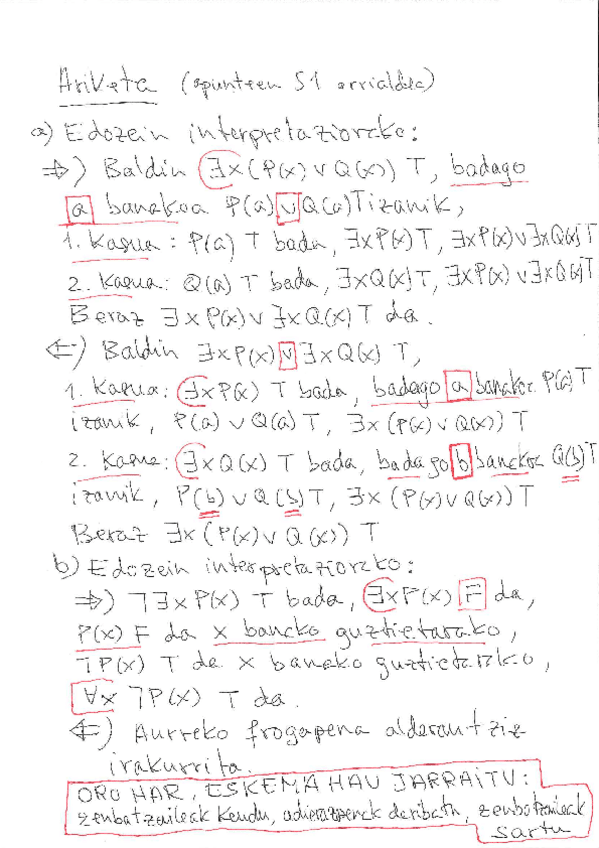 Ariketa (apunteen 51 orrialdea)
a) Edozein interpretaziorako:
⇒) Baldin ∃x(P(x) ∨ Q(x)) T, badago
a banakoa P(a) ∨ Q(a) T izanik,
1. Kasua: P(a) T bada, ∃xP(x) T, ∃xP(x) ∨ ∃xQ(x) T
2. Kasua: Q(a) T bada, ∃xQ(x) T, ∃xP(x) ∨ ∃xQ(x) T
Beraz ∃xP(x) ∨ ∃xQ(x) T da.
⇐) Baldin ∃xP(x) ∨ ∃xQ(x) T,
1. Kasua: ∃xP(x) T bada, badago a banakoa P(a) T
izanik, P(a) ∨ Q(a) T, ∃x(P(x) ∨ Q(x)) T
2. Kasua: ∃xQ(x) T bada, badago b banakoa Q(b) T
izanik, P(b) ∨ Q(b) T, ∃x(P(x) ∨ Q(x)) T
Beraz ∃x(P(x) ∨ Q(x)) T
b) Edozein interpretaziorako:
⇒) ¬∃xP(x) T bada, ∃xP(x) F da,
P(x) F da x banako guztietarako,
¬P(x) T da x banako guztietarako,
∀x ¬P(x) T da.
⇐) Aurreko frogapena alderantziz
irakurrita.
ORO HAR, ESKEMA HAU JARRAITU:
zenbatzaileak kendu, adierazpenak deribatu, zenbatzaileak
sartu